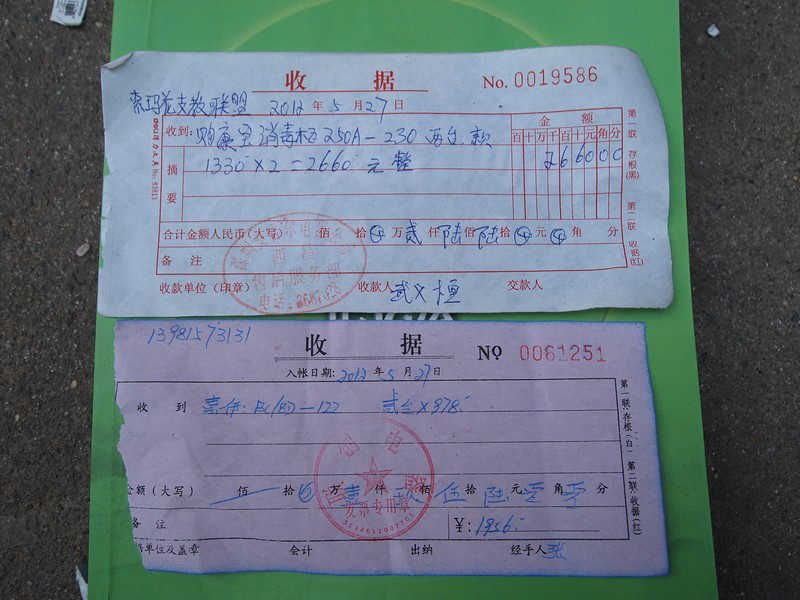 收 据
No. 0019586
索玛花支教联盟 2012 年 5 月 27 日
第一联 存根(黑) 第二联 收据(红)
金 额
收到: 消毒柜 250A-230 两台 款
百 十 万 千 百 十 元 角 分
摘要
1330×2=2660 元 整
2 6 6 0 0 0
合计金额人民币(大写) 佰 拾 万 贰 仟 陆 佰 陆 拾 元 角 分
备 注
收款单位(印章) 收款人 武义恒 交款人
13981573131
收 据
No 0061251
入帐日期: 2012 年 5 月 27 日
第一联:存根(白) 第二联:收据(红)
收 到 122 贰台×978
金额(大写) 佰 拾 万 壹 仟 玖 佰 伍 拾 陆 元 零 角 零 分
发票专用章
备 注
¥: 1956
单位及盖章 会计 出纳 经手人 张